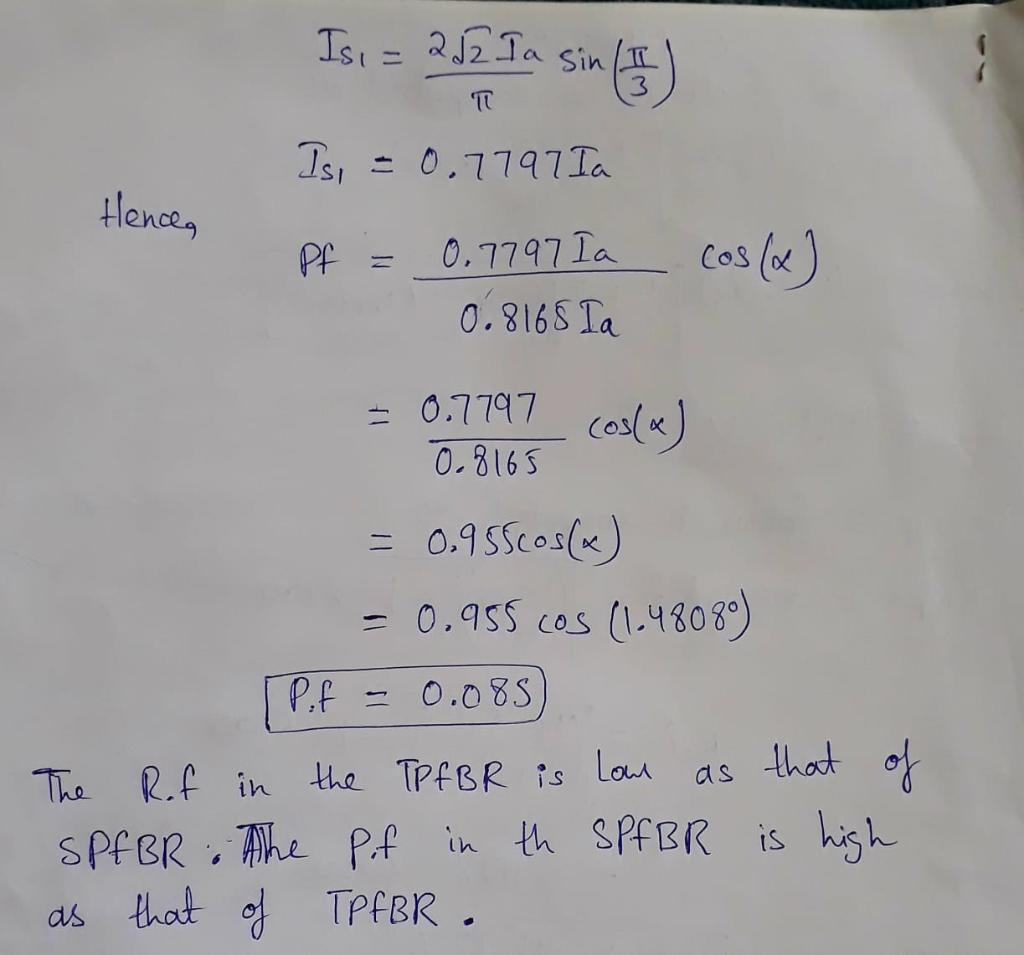 Is₁ = 2√2 Ia / π sin(π/3)
Is₁ = 0.7797 Ia
Hence,
Pf = 0.7797 Ia / 0.8165 Ia cos(α)
= 0.7797 / 0.8165 cos(α)
= 0.955cos(α)
= 0.955 cos (1.4808°)
P.f = 0.085
The R.f in the TPfBR is low as that of
SPfBR. The P.f in th SPfBR is high
as that of TPfBR.